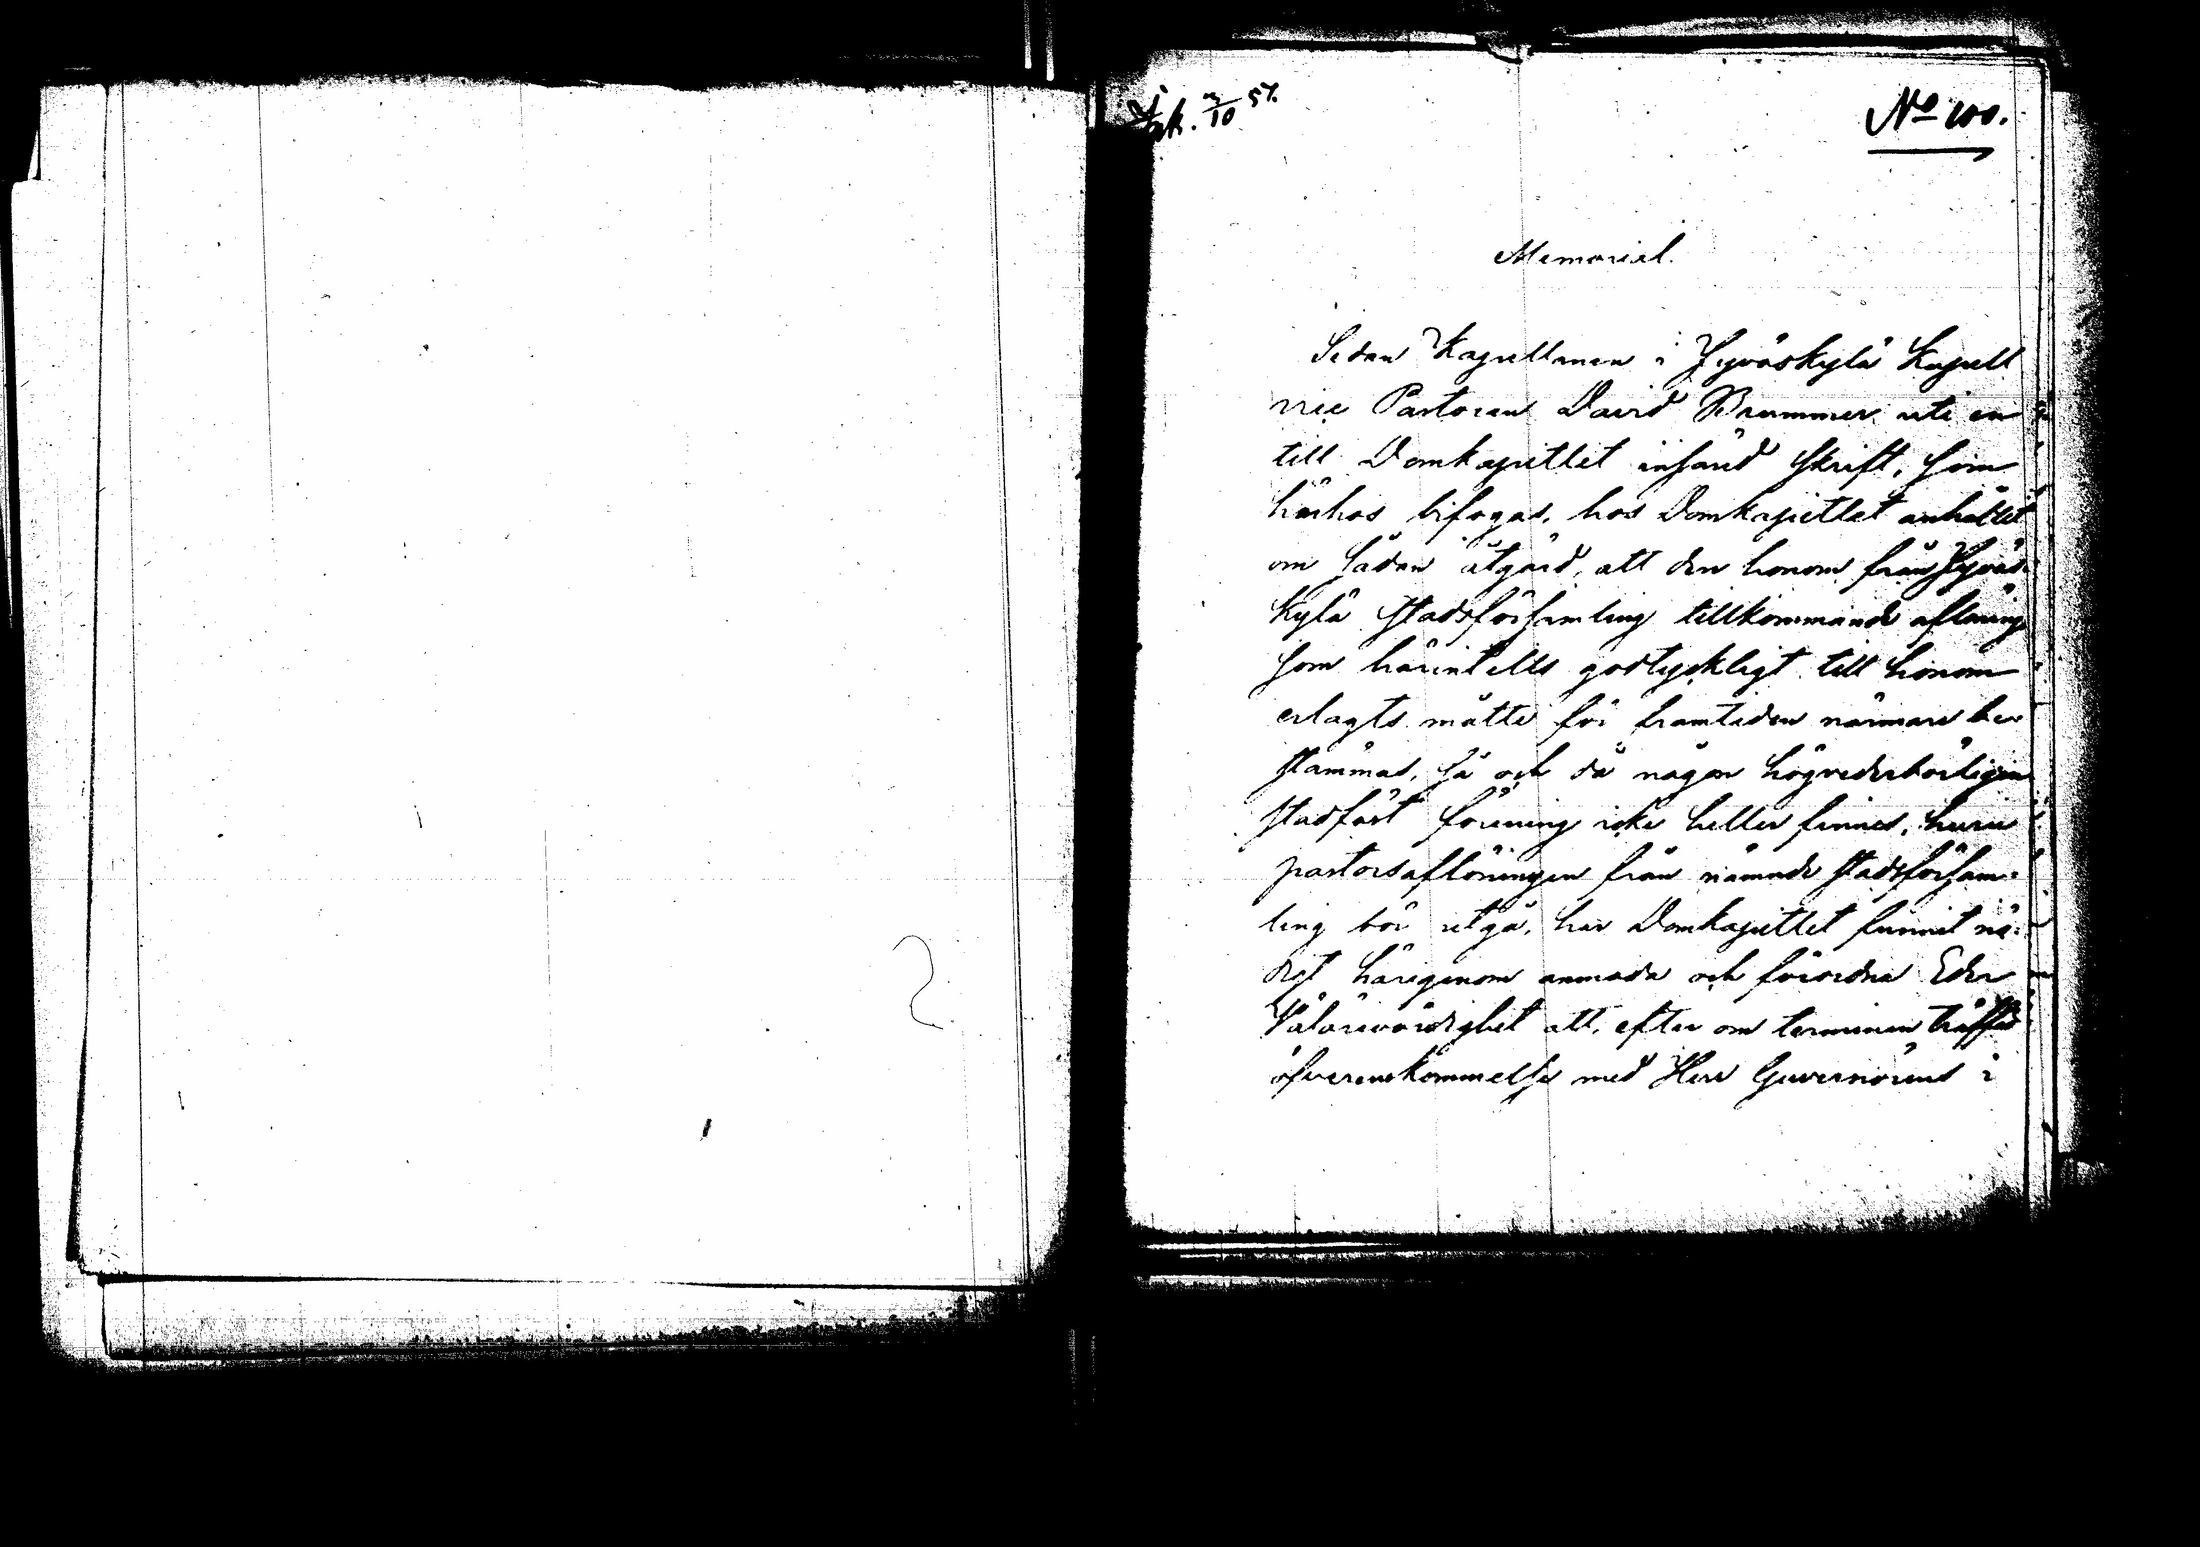 Ink. 3/10 57.
No 100.
Memorial.
Sedan Kapellanen i Jyväskylä Kapell
vice Pastoren David Brummer uti en
till Domkapitlet insänd skrift, som
härhos bifogas, hos Domkapitlet anhållit
om sådan åtgärd, att den honom från Jyväs-
kylä Stadsförsamling tillkommande aflöning
som härintills godtyckligt till honom
erlagts måtte för framtiden närmare be-
stämmas, så och då någon högvederbörligen
stadfäst förening icke heller finnes, huru
pastorsaflöningen från nämnde stadsförsam-
ling bör utgå, har Domkapitlet funnit nö-
digt härigenom anmoda och förordna Eder
Välärevördighet att, efter om terminen träffad
öfverenskommelse med Herr Guvernörens i